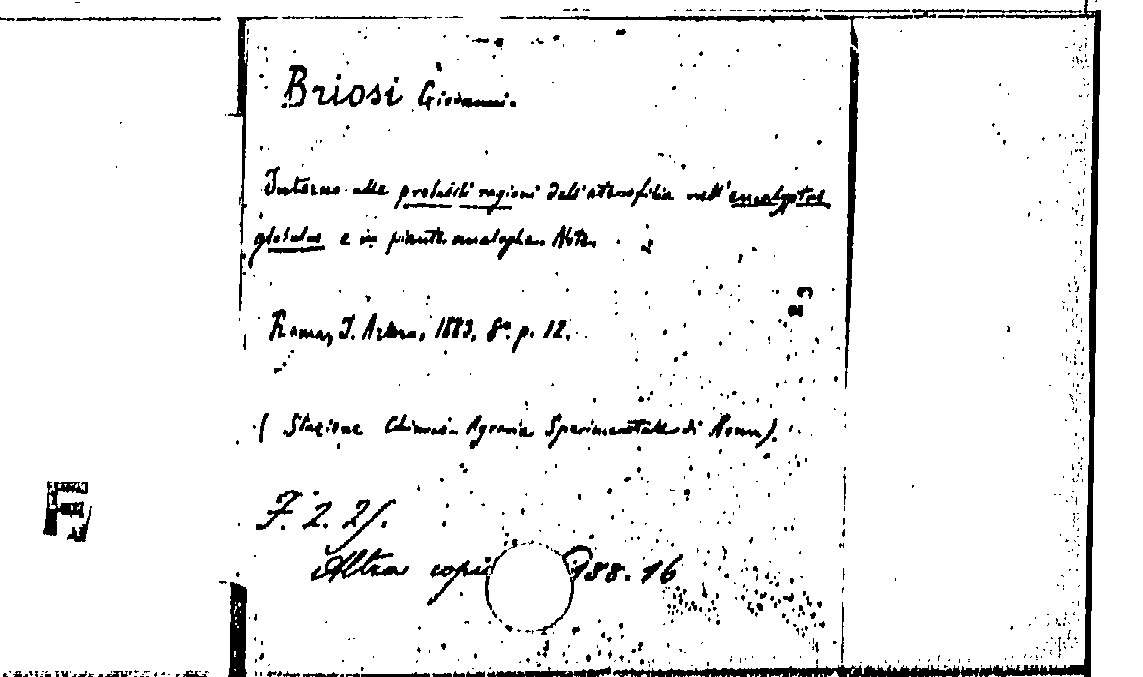 Briosi Giovanni.
Intorno alle probabili ragioni dell'eterofilia nell'eucalyptus
globulus e in piante analoghe. Nota.
Roma, T. Artero, 1883, 8º. p. 12.
(Stazione Chimico-Agraria Sperimentale di Roma).
F. 2. 25.
Altra copia P 88. 16